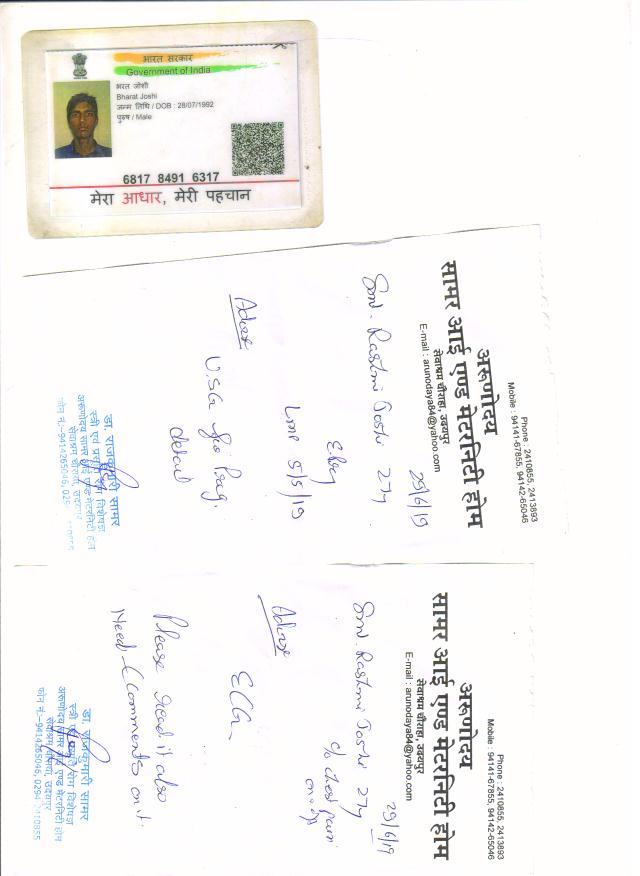 भारत सरकार
Government of India
भरत जोशी
Bharat Joshi
जन्म तिथि / DOB : 28/07/1992
पुरुष / Male
6817 8491 6317
मेरा आधार, मेरी पहचान
Phone : 2410855, 2413893
Mobile : 94141-67855, 94142-65046
अरूणोदय
सामर आई एण्ड मेटरनिटी होम
सेवाश्रम चौराहा, उदयपुर
E-mail : arunodaya84@yahoo.com
29/6/19
Smt. Rashmi Joshi 27y
LMP 5/5/19
Advise
detail
डा. राजकुमारी सामर
स्त्री एवं प्रसूति रोग विशेषज्ञ
अरूणोदय सामर आई एण्ड मेटरनिटी होम
सेवाश्रम चौराहा, उदयपुर
फोन नं.-9414265046, 029
Phone : 2410855, 2413893
Mobile : 94141-67855, 94142-65046
अरूणोदय
सामर आई एण्ड मेटरनिटी होम
सेवाश्रम चौराहा, उदयपुर
E-mail : arunodaya84@yahoo.com
29/6/19
Smt. Rashmi Joshi 27y
c/o chest pain
Advise
ECG
Please read it also
Need comments on it.
डा. राजकुमारी सामर
स्त्री एवं प्रसूति रोग विशेषज्ञ
अरूणोदय सामर आई एण्ड मेटरनिटी होम
सेवाश्रम चौराहा, उदयपुर
फोन नं.-9414265046, 0294-2410855